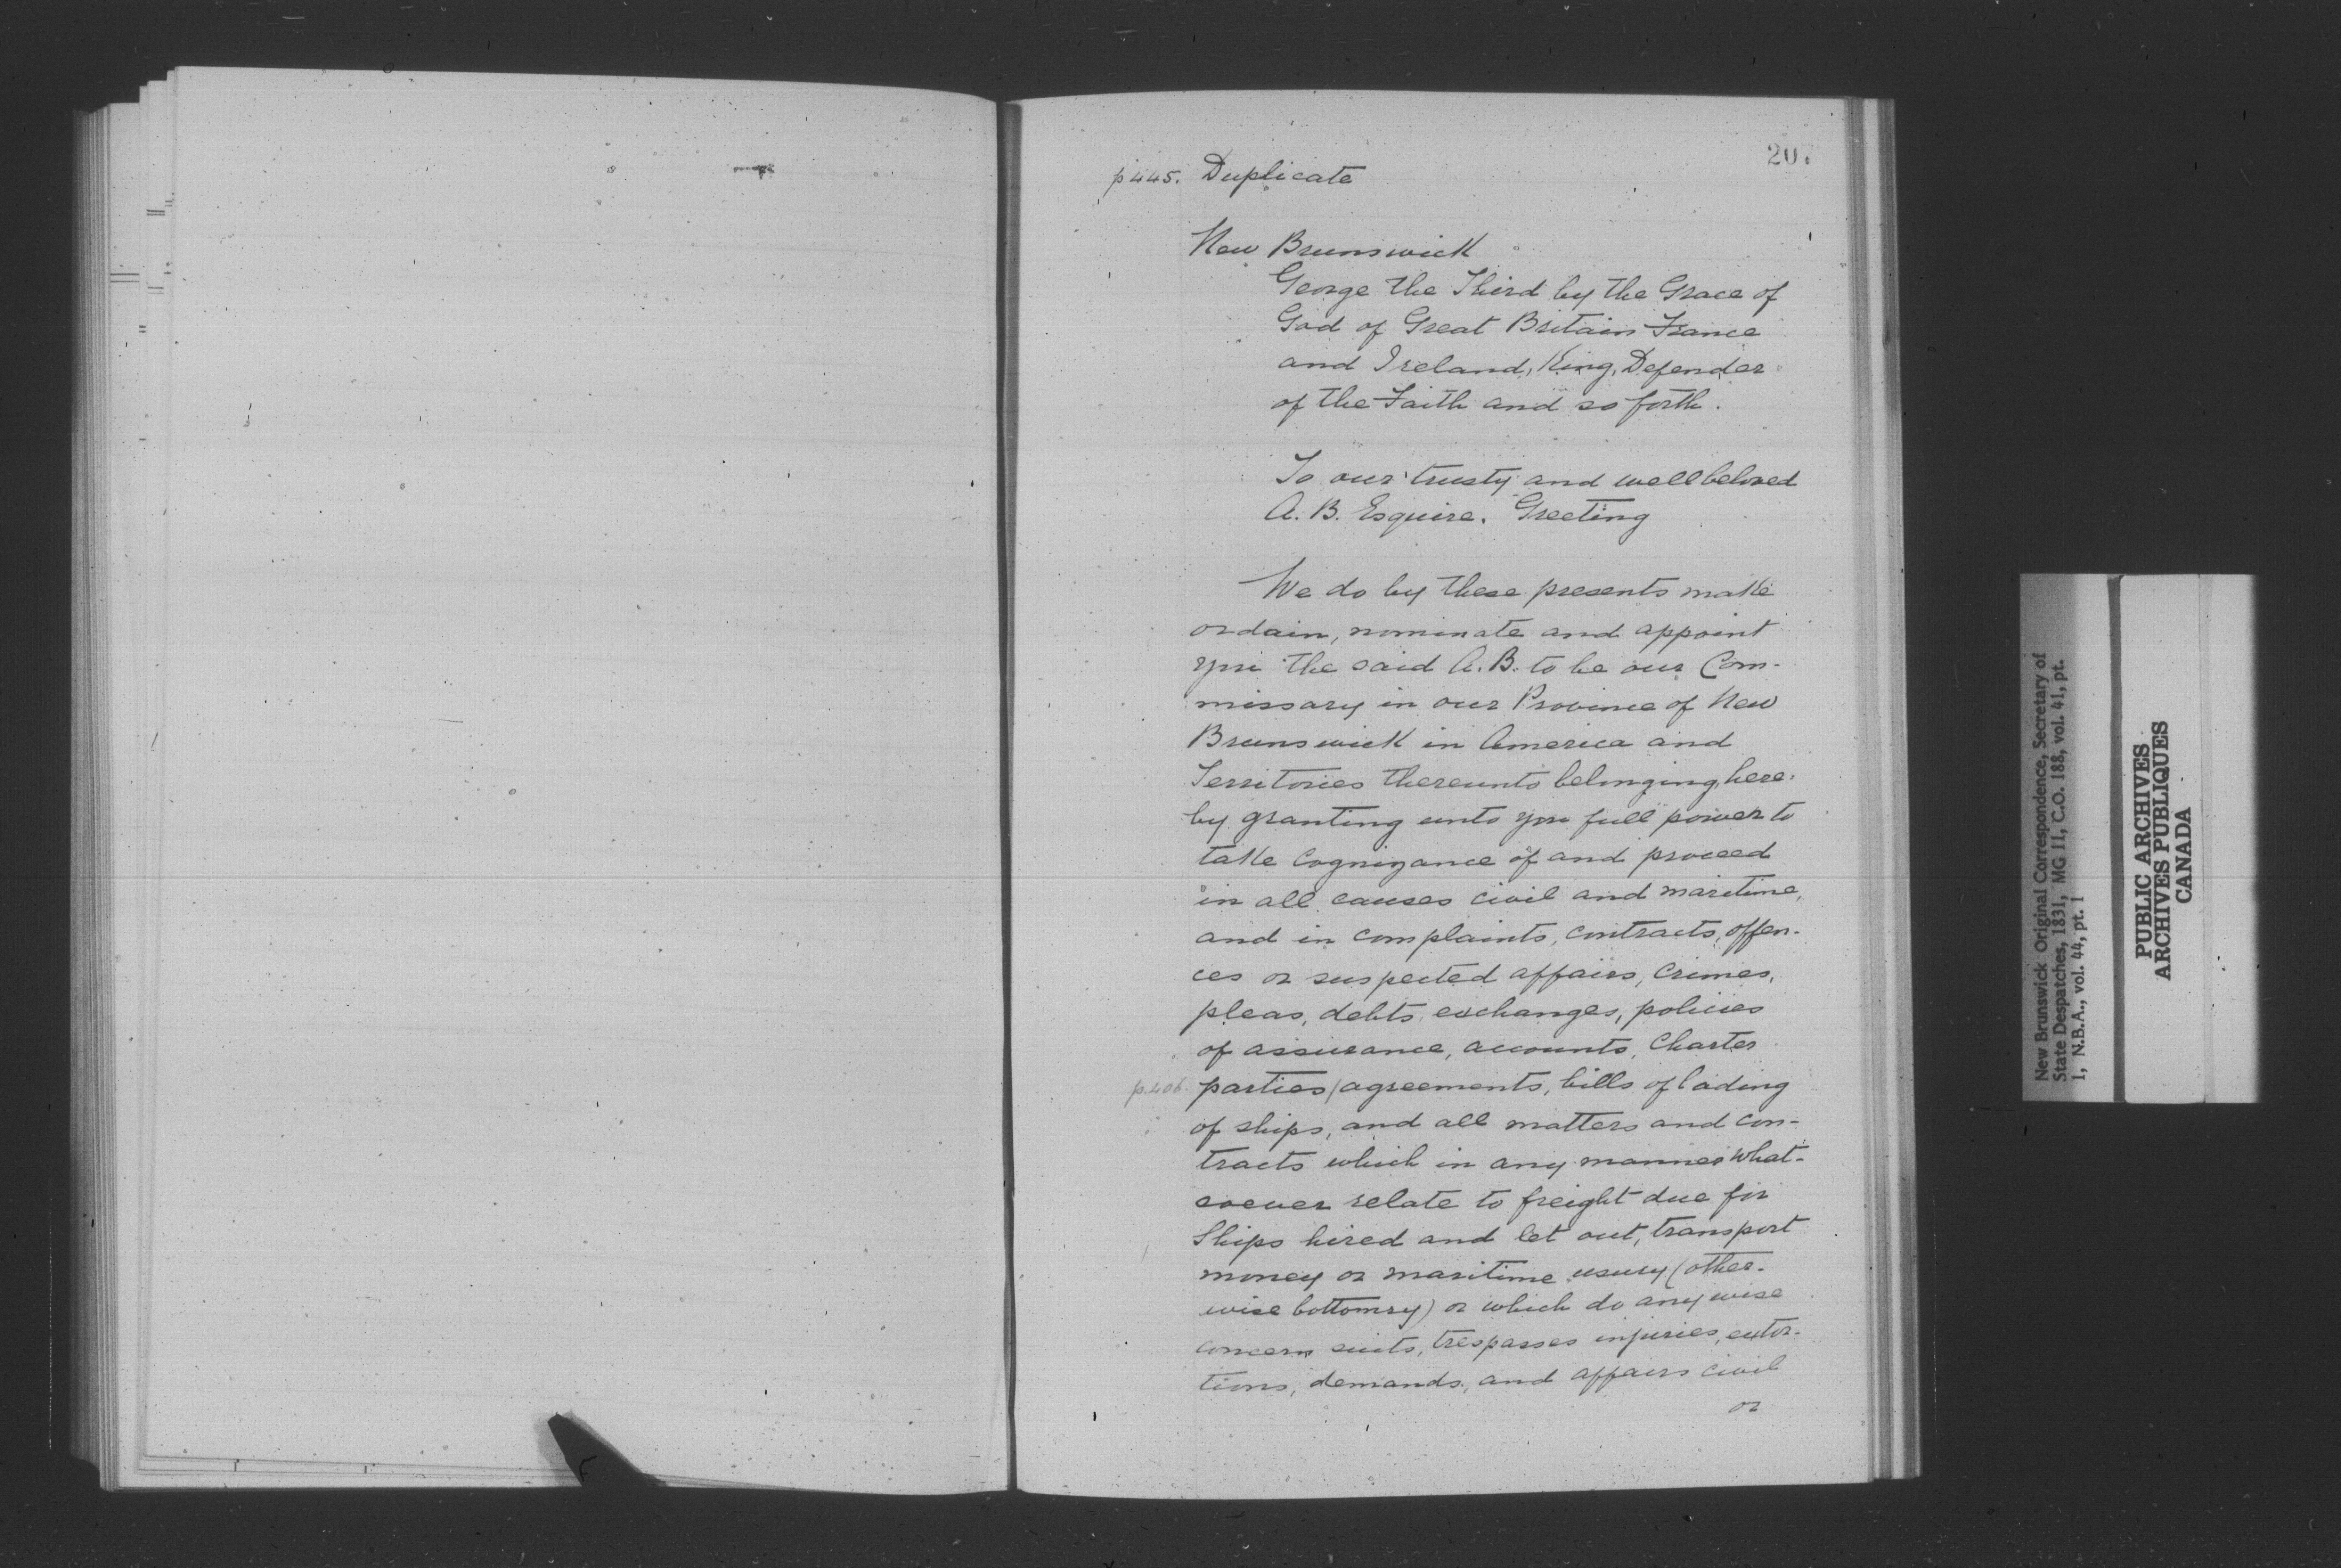 207
p 445. Duplicate
New Brunswick
George the Third by the Grace of
God of Great Britain France
and Ireland, King, Defender
of the Faith and so forth.
To our trusty and well beloved
A. B. Esquire. Greeting
We do by these presents make
ordain, nominate and appoint
you the said A. B. to be our Com-
missary in our Province of New
Brunswick in America and
Territories thereunto belonging, here-
by granting unto you full power to
take Cognizance of and proceed
in all causes civil and maritime,
and in complaints, contracts, offen-
ces or suspected affairs, crimes,
pleas, debts, exchanges, policies
of assurance, accounts, Charter
p. 406. parties / agreements, bills of lading
of ships, and all matters and con-
tracts which in any manner what-
soever relate to freight due for
Ships hired and let out, transport
money or maritime usury (other-
wise bottomry) or which do any wise
concern suits, trespasses injuries, extor-
tions, demands, and affairs civil
or
New Brunswick Original Correspondence, Secretary of
State Despatches, 1831, MG 11, C.O. 188, vol. 41, pt.
1, N.B.A., vol. 44, pt. 1
PUBLIC ARCHIVES
ARCHIVES PUBLIQUES
CANADA